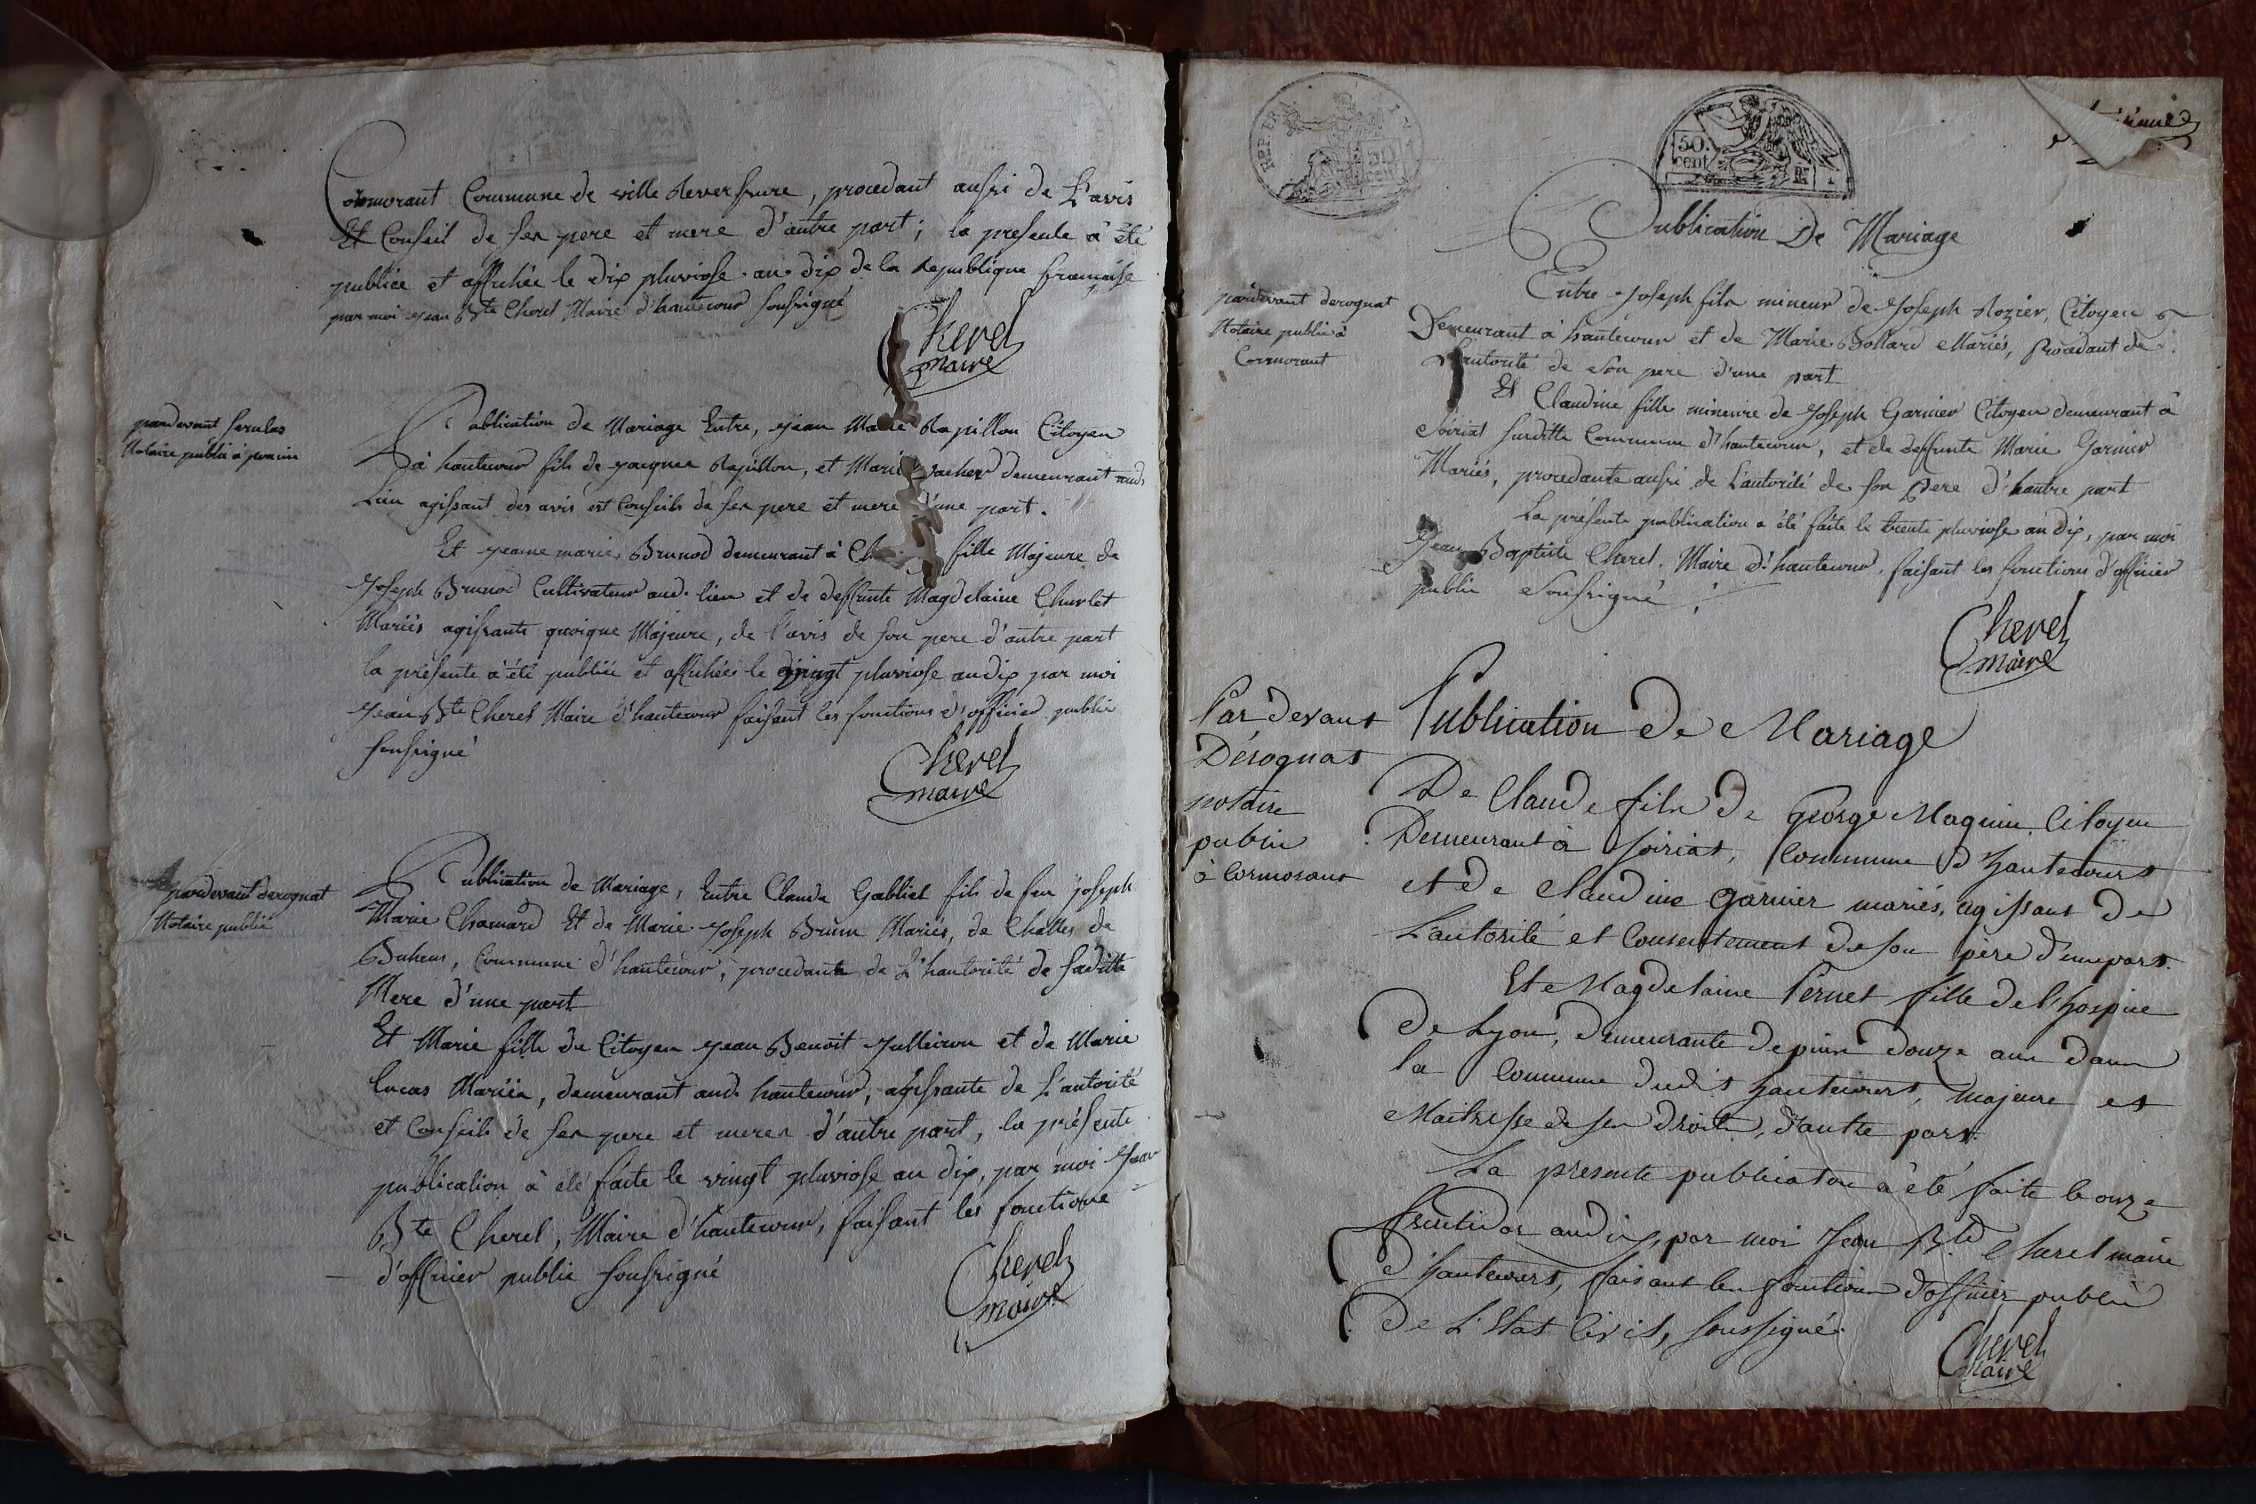 Cormorant Commune de ville Reverssure, procedant aussi de L'avis
Et Conseil de ses pere et mere d'autre part; la presente a été
publiée et affichée le dix pluviose an dix de la Republique francaise
par moi jean Bte Cherel Maire d'hautecour soussigné
Cherel
maire
pardevant
Notaire public à
Publication de Mariage Entre, jean Marie Rapillon Citoyen
à hautecour fils de jacques Rapillon, et Marie Vacher demeurant aud.
Lieu agissant des avis et Conseils de ses pere et mere d'une part.
Et jeanne marie Brunod demeurant à fille Majeure de
Joseph Brunod Cultivateur aud. lieu et de deffunte Magdelaine Churlet
Mariés agissante quoique Majeure, de l'avis de son pere d'autre part
la présente a été publiée et affichée le vingt pluviose an dix par moi
Jean Bte Cherel Maire d'hautecour faisant les fonctions d'officier public
soussigné
Cherel
maire
pardevant derognat
Notaire public
Publication de Mariage, Entre Claude Gabliet fils de feu joseph
Marie Chamard Et de Marie Joseph Brun Mariés, de Challes de
Bohens, Commune d'hautecour, procedante de L'hautorité de saditte
Mere d'une part
Et Marie fille du Citoyen jean Benoit Jullieron et de Marie
Lucas Mariés, demeurant aud. hautecour, agissante de L'autorité
et Conseils de ses pere et meres d'autre part, la présente
publication à été faite le vingt pluviose an dix, par moi Jean
Bte Cherel, Maire d'hautecour, faisant les fonctions
d'officier public soussigné
Cherel
maire
REP. FRA
50
cent
50.
cent
Publication De Mariage
pardevant derognat
Notaire public à
Cormorant
Entre Joseph fils mineur de Joseph Rozier, Citoyen
Demeurant à hautecour et de Marie Bollard Mariés, procedant de
L'autorité de son pere d'une part
Et Claudine fille mineure de Joseph Garnier Citoyen demeurant à
Soiriat susditte Commune d'hautecour, et de deffunte Marie Garnier
Mariés, procedante aussi de L'autorité de son Pere d'hautre part
La présente publication a été faite le trente pluviose an dix, par moi
Jean Baptiste Cherel, Maire d'hautecour, faisant les fonctions d'officier
public soussigné
Cherel
maire
Par devant
Dérognat
notaire
public
à Cormorant
Publication de Mariage
De Claude fils de George Maguin, Citoyen
Demeurant à Soiriat, Commune d'hautecourt
et de Claudine Garnier mariés, agissant de
L'autorité et Consentement de son père d'une part.
Et Magdelaine Pernet fille de l'hospice
De Lyon, demeurante depuis douze ans dans
la Commune dudit hautecourt, majeure et
Maitresse de ses droits, d'autre part.
La presente publication à été faite le onze
fructidor an dix, par moi Jean Bte Cherel maire
d'hautecourt, faisant les fonctions d'officier public
De L'Etat Civil, soussigné.
Cherel
maire